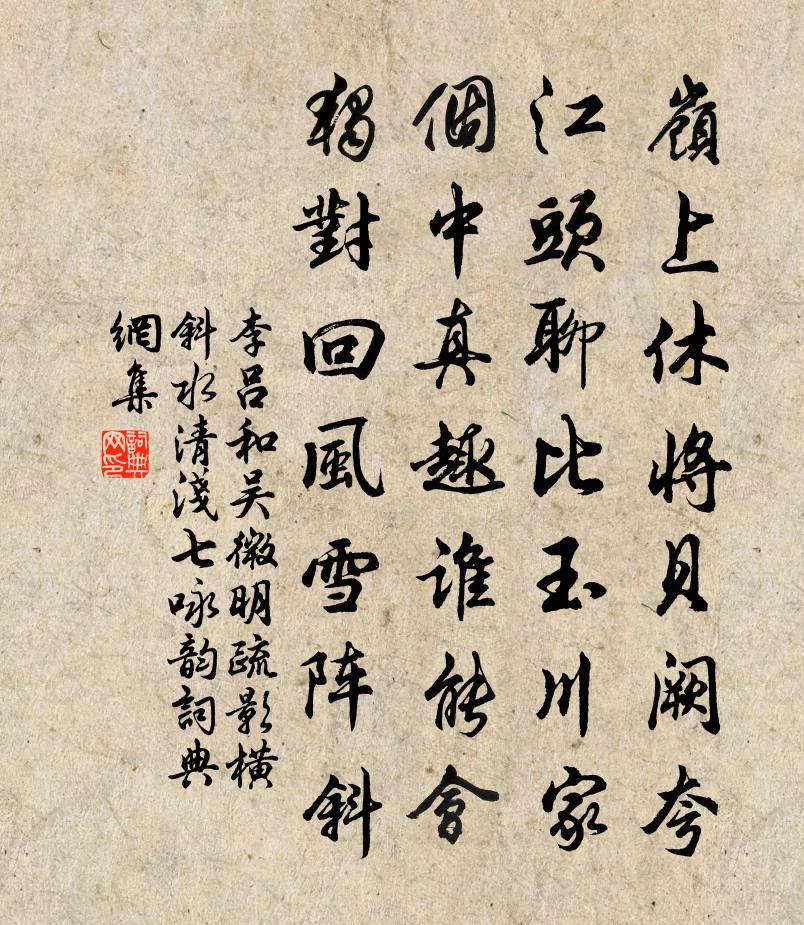 嶺上休將貝闕夸
江頭聊比玉川家
個中真趣誰能會
獨對回風雪阵斜
李吕和吴微明疏影橫
斜水清淺七咏韵詞典
網集
詞典網印